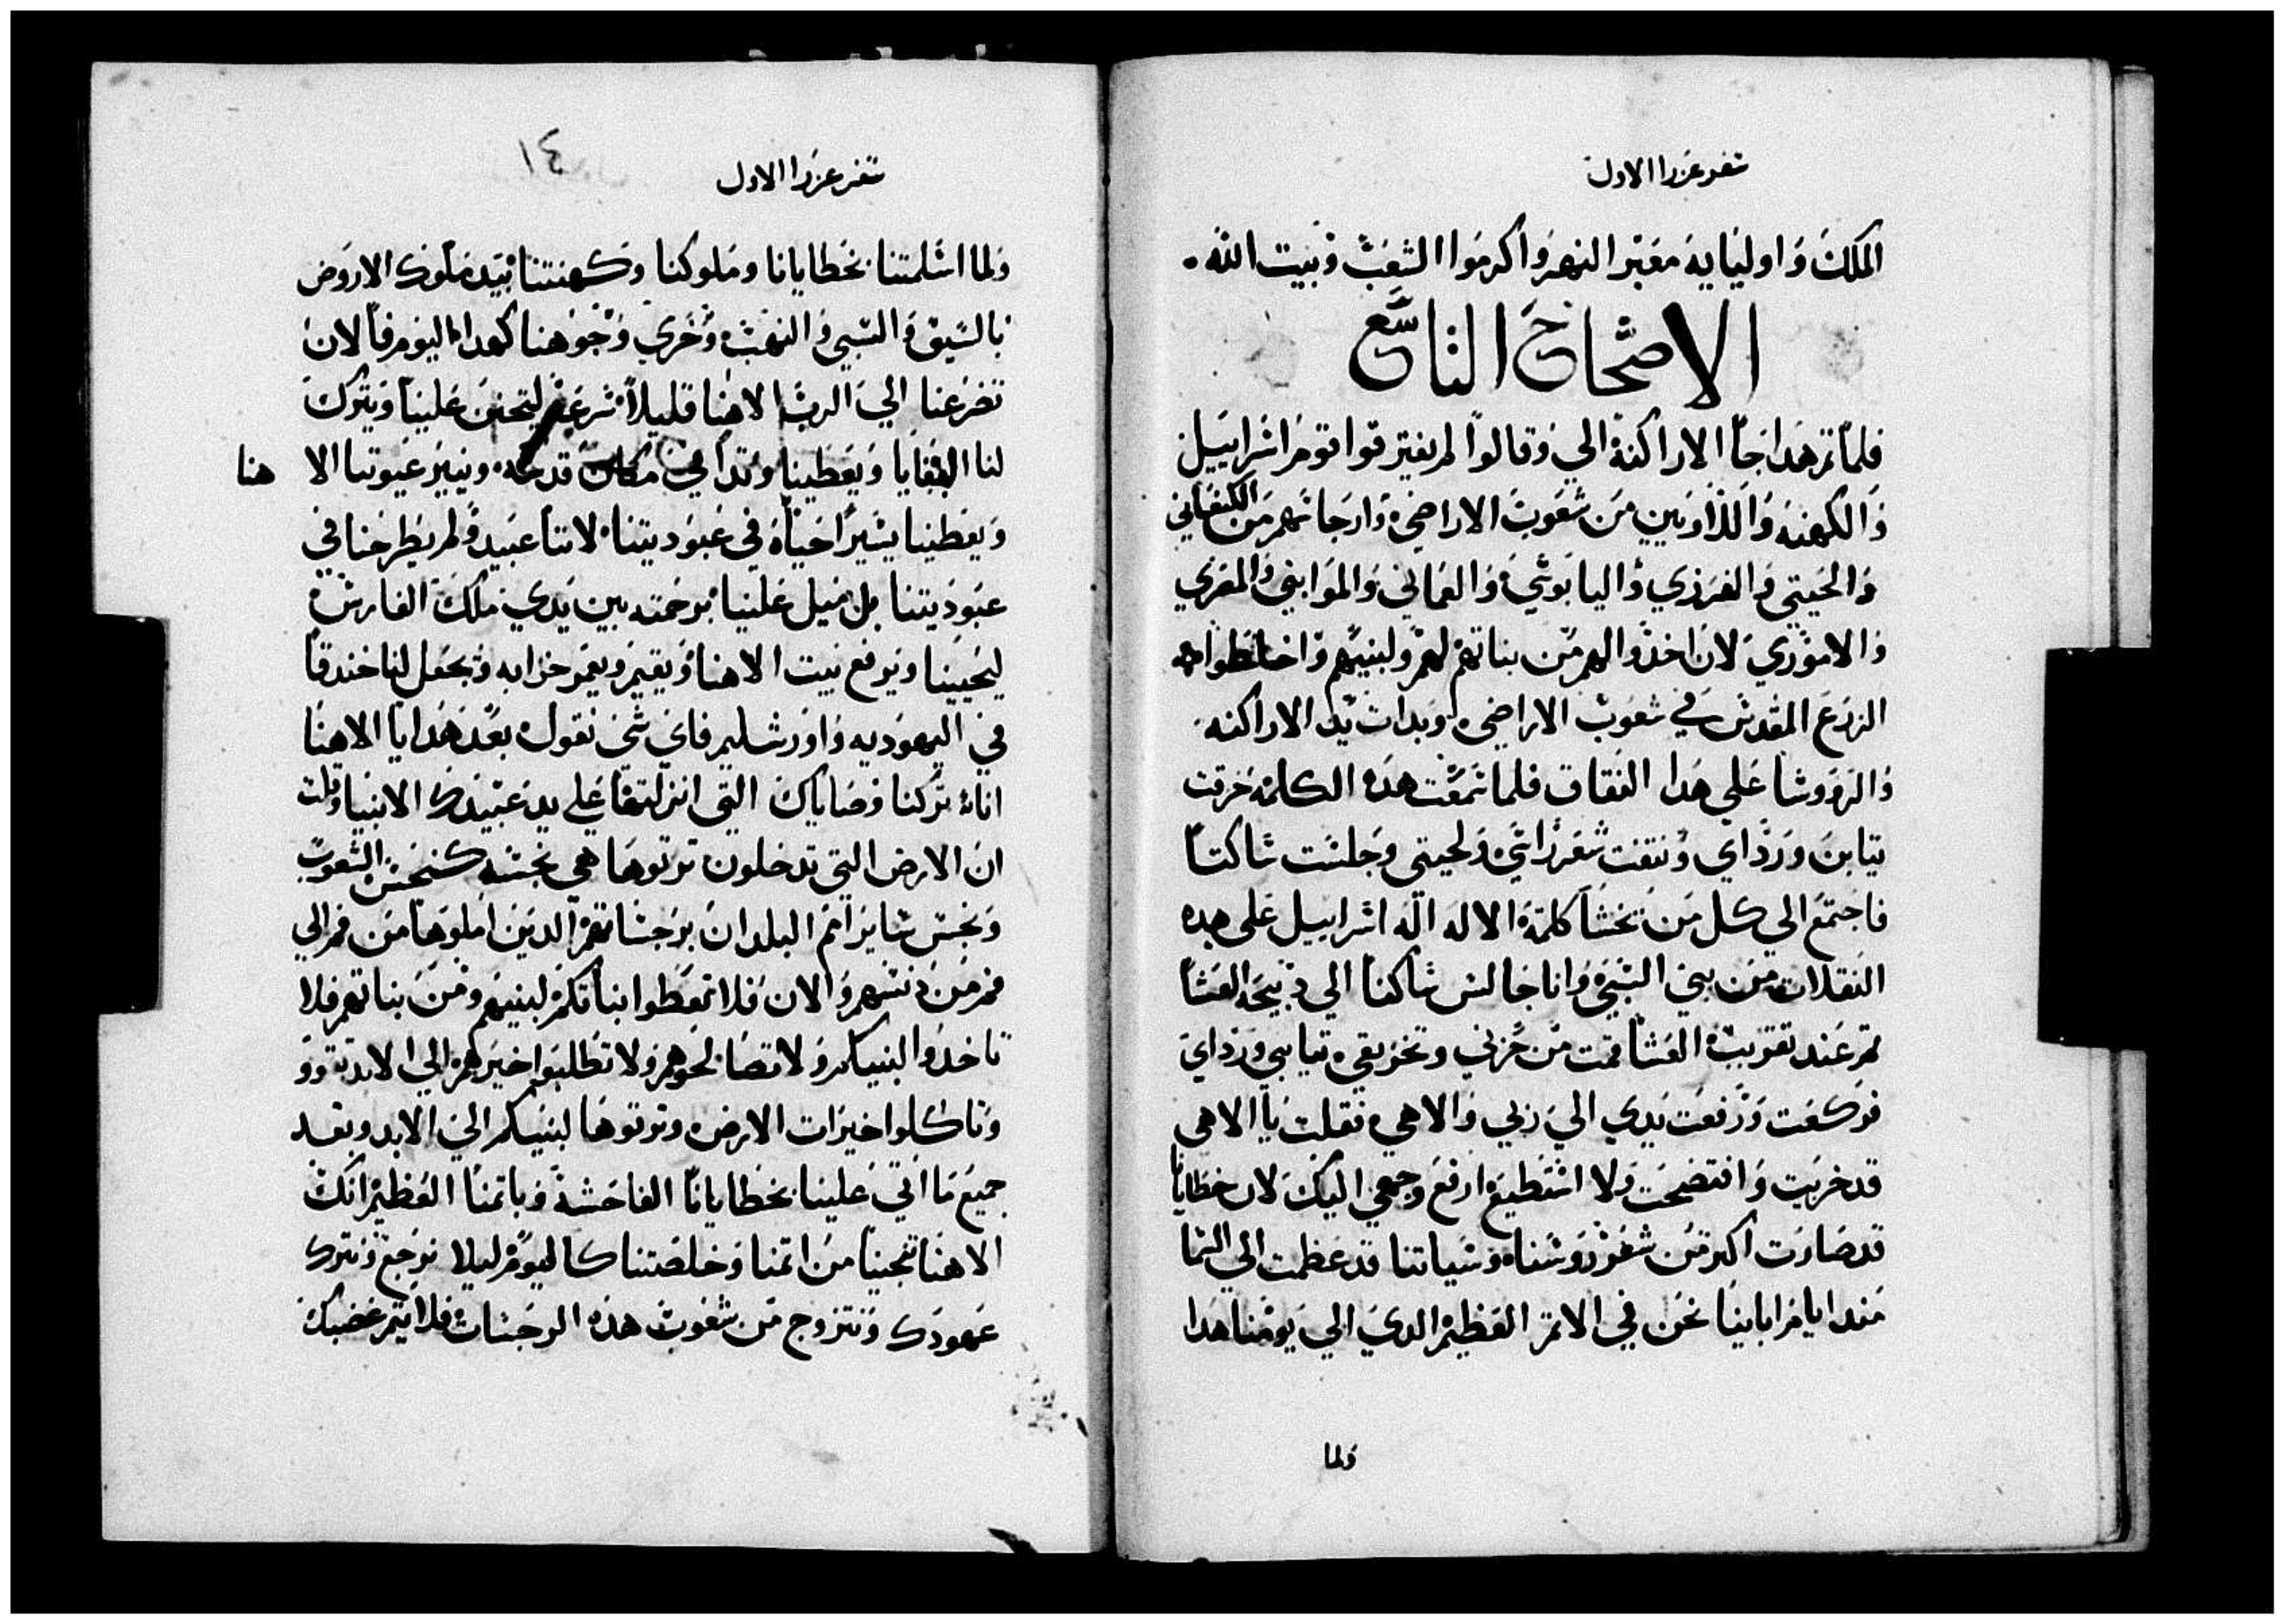 سفر عزرا الاول
الملك واوليايه معبر النهر واكرموا الشعب وبيت الله.
الاصحاح التاسع
فلما تم هدا جا الاراكنة الي وقالوا لم يفترقوا قوم اسراييل
والكهنه واللاويين من شعوب الاراضي وارجاسهم من الكنعاني
والحيتي والفرزي واليابوسي والعماني والموابي والمصري
والاموري لان اخدوا لهم من بناتهم لهم ولبنيهم واختلطوا
الزرع المقدس في شعوب الاراضي وبدات يد الاراكنه
والروو سا علي هدا النفاق فلما سمعت هده الكلمة خرقت
تيابي ورداي ونتفت شعر راسي ولحيتي وجلست ساكتا
فاجتمع الي كل من يخشا كلمة الاله اله اسراييل على هده
النقلات من بني السبي وانا جالس ساكتا الي دبيحة العشا
تم عند تقريب العشا قمت من حزني وتخريقي تيابي ورداي
فركعت ورفعت يدي الي ربي والاهي فقلت يا الاهي
قد خزيت وافتضحت ولا استطيع ارفع وجهي اليك لان خطايانا
قد صارت اكتر من شعور روسنا وسياتنا قد عظمت الي السما
مند ايام اباينا نحن في الاتم العظيم الدي الي يومنا هدا
ولما
سفر عزرا الاول
١٤
ولما اسلمتنا بخطايانا وملوكنا وكهنتنا بيد ملوك الاروض
بالسيف والسبي والنهب وخزي وجوهنا كهدا اليوم فالان
تضرعنا الي الرب الاهنا قليلا ليتحنن علينا ويترك
لنا البقايا ويعطينا وتدا في مكان قدسه وينير عيوننا الا هنا
ويعطينا يسيرا حياة في عبوديتنا لاننا عبيد ولم يطرحنا في
عبوديتنا بل ميل علينا برحمته بين يدي ملك الفارس
ليحيينا ويرفع بيت الاهنا ويقيم ويعمر خرابه ويجعل لنا خندقا
في اليهوديه واورشليم فاي شي نقول بعد هدا يا الاهنا
اننا تركنا وصاياك التي انزلتها علي يد عبيدك الانبيا وقلت
ان الارض التي تدخلون ترتوها هي نجسه كنجس الشعوب
ونجس ساير امم البلدان برجساتهم الدين املوها من فم الي
فم من نسهم والان فلا تعطوا بناتكم لبنيهم ومن بناتهم فلا
تاخدوا لبنيكم ولا تصالحوهم ولا تطلبوا خيرهم الي الابد تقووو
وتاكلوا خيرات الارض وترتوها لبنيكم الي الابد وبعد
جميع ما اتي علينا بخطايانا الفاحشة وباتمنا العظيم انك
الاهنا تنجينا من اتمنا وخلصتنا كاليوم ليلا نرجع ونترك
عهودك ونتزوج من شعوب هده الرجسات فلا يتم غضبك